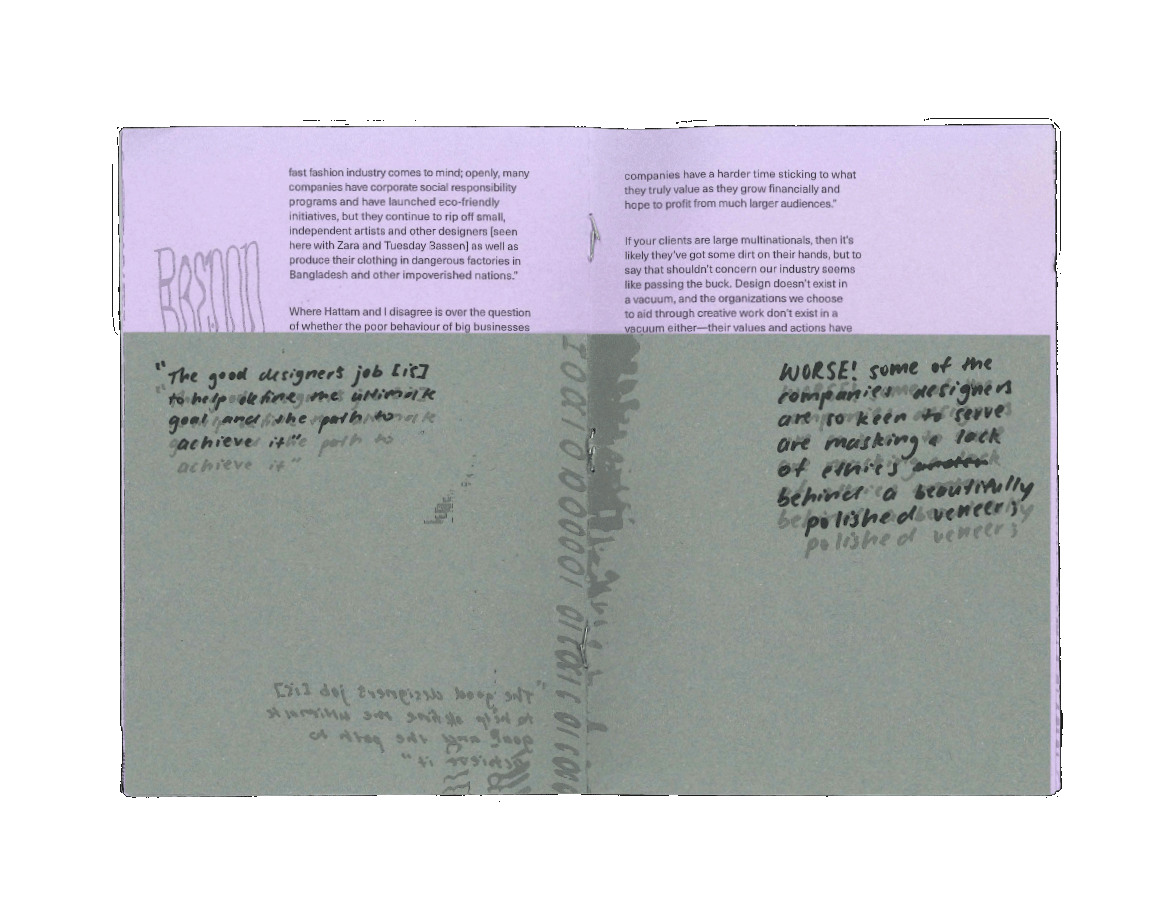 fast fashion industry comes to mind; openly, many
companies have corporate social responsibility
programs and have launched eco-friendly
initiatives, but they continue to rip off small,
independent artists and other designers [seen
here with Zara and Tuesday Bassen] as well as
produce their clothing in dangerous factories in
Bangladesh and other impoverished nations."
Where Hattam and I disagree is over the question
of whether the poor behaviour of big businesses
companies have a harder time sticking to what
they truly value as they grow financially and
hope to profit from much larger audiences."
If your clients are large multinationals, then it's
likely they've got some dirt on their hands, but to
say that shouldn't concern our industry seems
like passing the buck. Design doesn't exist in
a vacuum, and the organizations we choose
to aid through creative work don't exist in a
vacuum either—their values and actions have
"The good designers job [is]
to help define the ultimate
goal and the path to
achieve it"
WORSE! some of the
companies designers
are so keen to serve
are masking a lack
of ethics
behind a beautifully
polished veneers
"The good designers job [is]
to help define the ultimate
goal and the path to
achieve it"